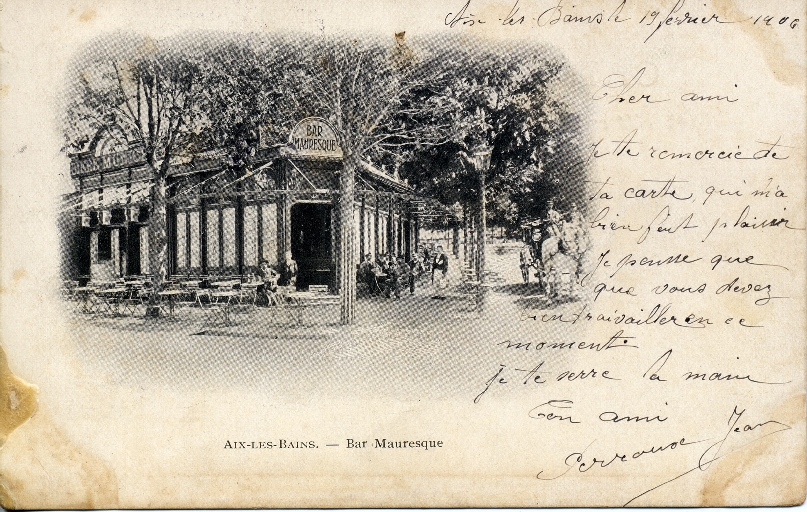 Aix-les-Bains le 19 février 1906
Cher ami
Je te remercie de
ta carte qui m'a
bien fait plaisir
Je pense que
que vous devez
bien travailler en ce
moment.
je te serre la main
Ton ami
Perrouse Jean
BAR
MAURESQUE
AIX-LES-BAINS. — Bar Mauresque